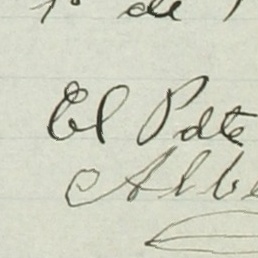 de
El Pdte
Albe